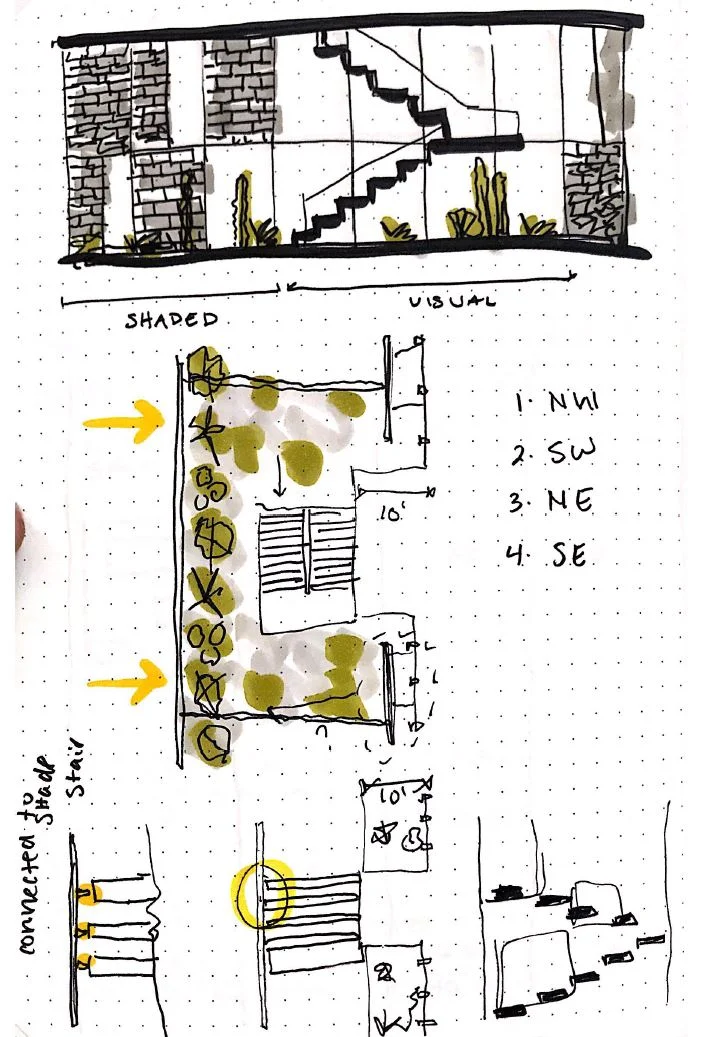 SHADED
VISUAL
1. NW
2. SW
3. NE
4. SE
10'
10'
connected to
shade
stair